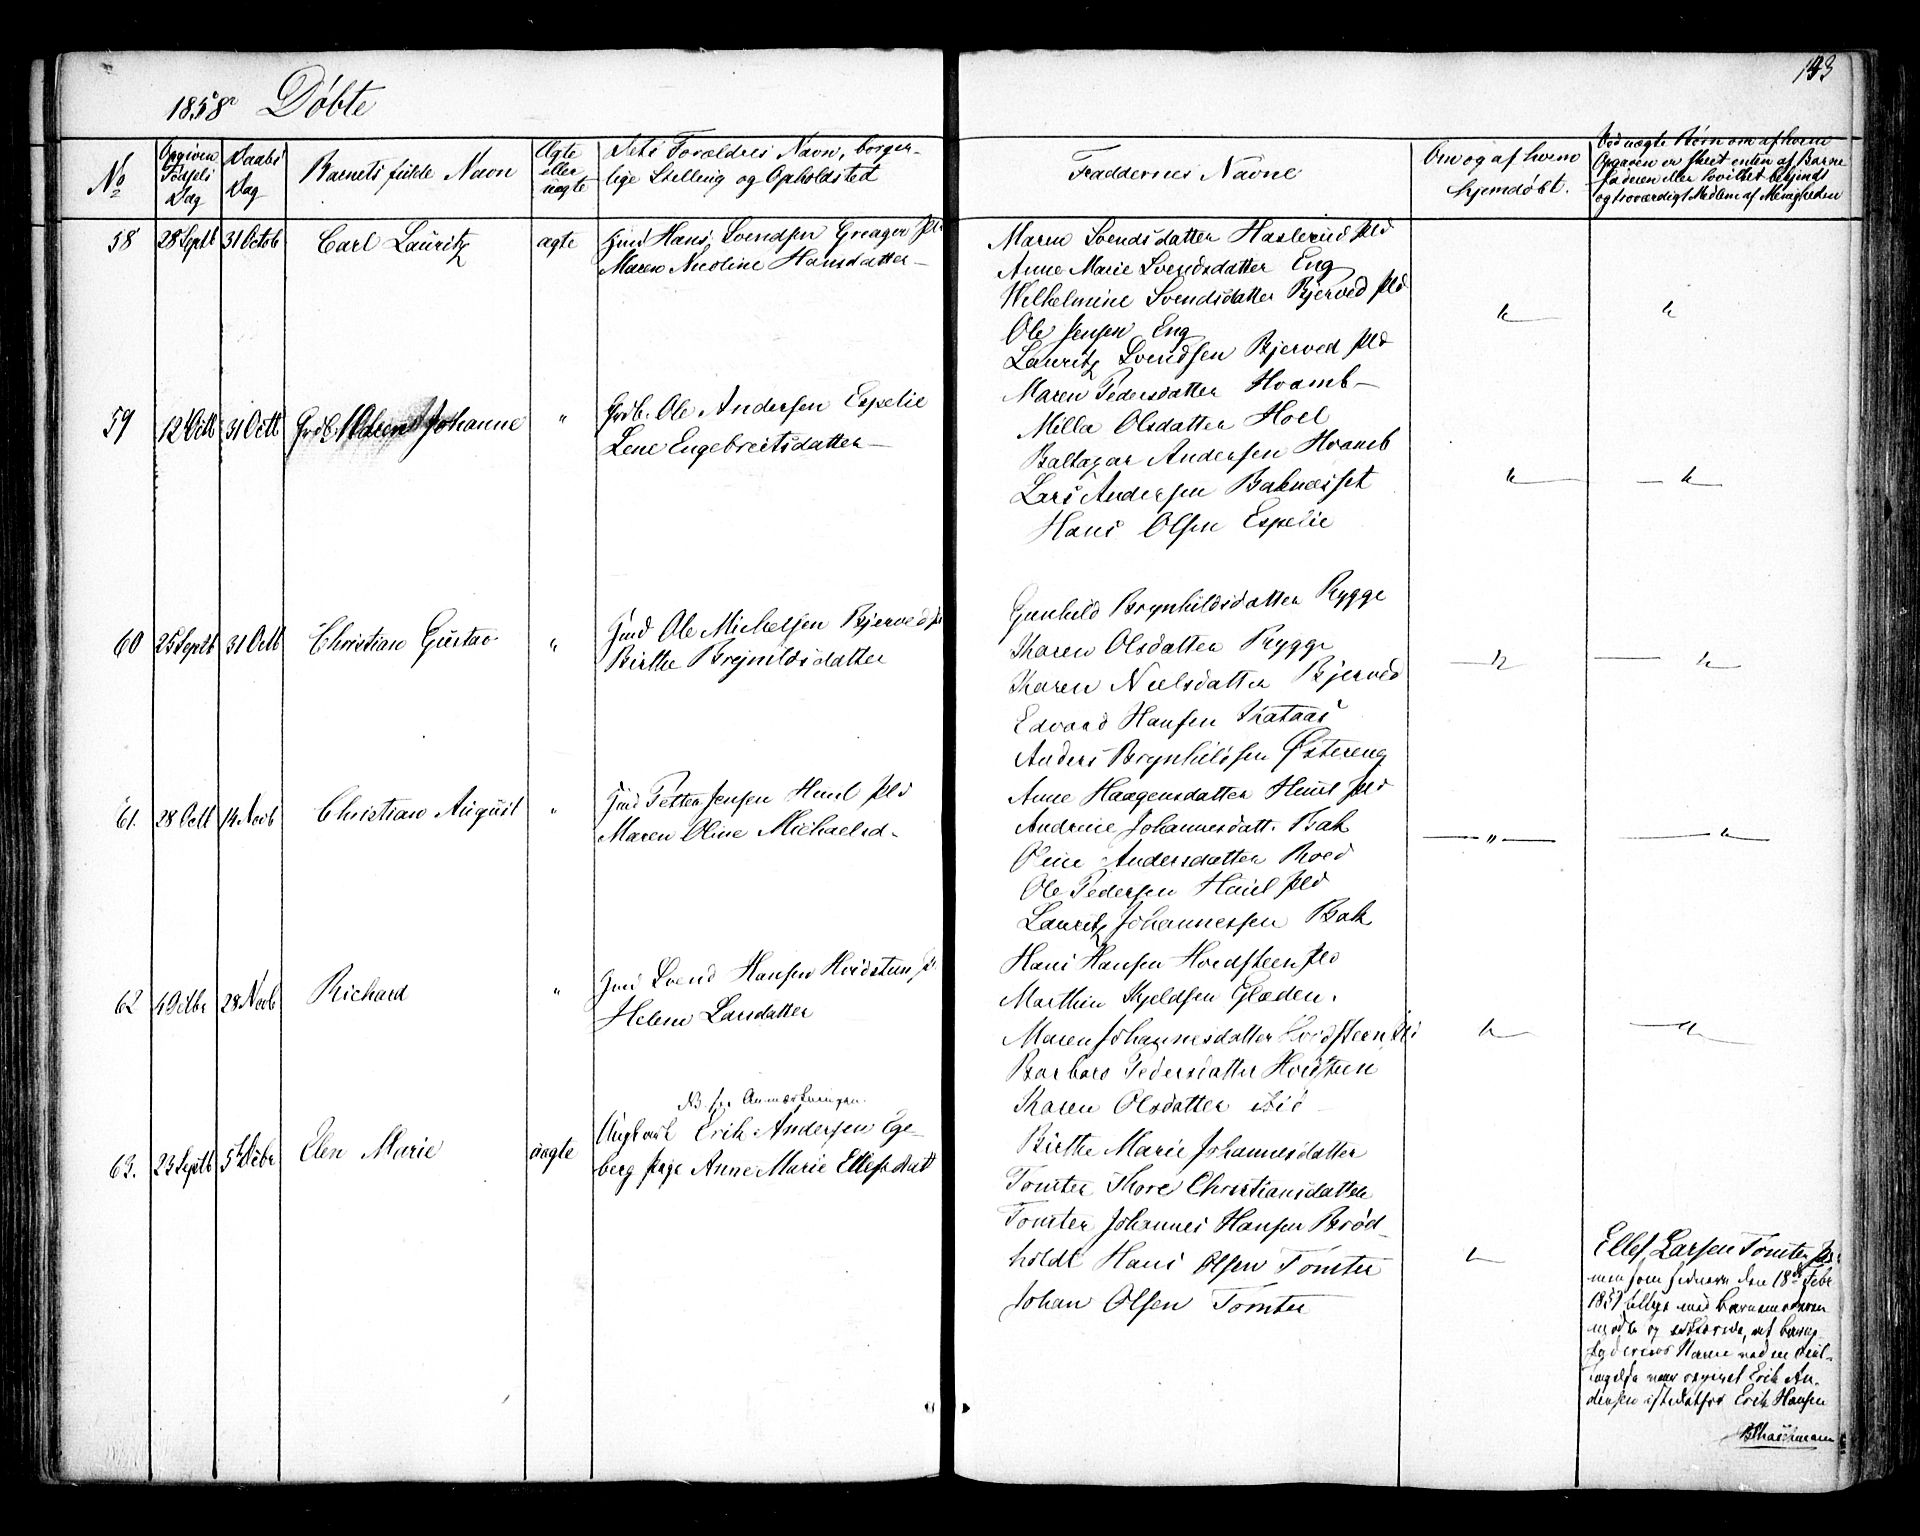 1858 Døbte
143
No
Opgiven Fødsels Dag
Daabs Dag
Barnets fulde Navn
Ægte eller uægte
Dets Forældres Navn, borger-
lige Stilling og Opholdsted
Faddernes Navne
Om og af hvem
hjemdøbt.
Ved uægte Børn om af hvem
Opgaven er skeet enten af Barne
faderen eller hvilket bekjendt
og troværdigt Medlem af Menigheden
58 28 Septb 31 Octob Carl Lauritz ægte Gmd Hans Svendsen Greager Pld
Maren Nicoline Hansdatter
Maren Svendsdatter Haslerud Pld
Anne Marie Svendsdatter Eng
Wilhelmine Svendsdatter Bjerved Pld
Ole Jensen Eng
Lauritz Svendsen Bjerved Pld
59 12 Octb 31 Octb Johanne " Grdb. Ole Andersen Espelie
Lene Engebretsdatter
Maren Pedersdatter Hvamb
Milla Olsdatter Hoel
Baltazar Andersen Hvamb
Lars Andersen
Hans Olsen Espelie
60 25 Septb 31 Octb Christian Gustav " Gmd Ole Michelsen Bjerved
Birthe Brynildsdatter
Gunhild Brynhildsdatter Rygge
Karen Olsdatter Rygge
Karen Nielsdatter Bjerved
Edvard Hansen
Anders Brynhildsen Østereng
61. 28 Octb 14 Novb Christian August " Gmd Petter Jensen Huul Pld
Maren Oline Michaelsd.
Anne Haagensdatter Huul Pld
Andrine Johannesdatt. Bak
Oline Andersdatter Roed
Ole Pedersen Huul Pld
Lauritz Johannessen Bak
62 4 Octbr 28 Novb Richard " Gmd Svend Hansen Hvidsteen
Helene Larsdatter
Hans Hansen Hvidsteen Pld
Marthin Kjeldsen Glæden.
Maren Johannesdatter Hvidsteen Pld
Barbara Pedersdatter Hvidsteen
Karen Olsdatter ibid
NB se Anmærkningen.
63. 23 Septb 5 Decbr Elen Marie uægte Ungkarl Erik Andersen Ege-
berg Pige Anne Marie Ellefsdat
Birthe Marie Johannesdatter
Tomter Thore Christiansdatter
Tomter Johannes Hansen Brød-
holdt Hans Olsen Tomter
Johan Olsen Tomter
Ellef Larsen Tomter
men som siden den 18de Febr
1859 tillige med Barnemoderen
mødte og erklærede, at Barne-
faderens Navn ved en Feil-
tagelse var opgivet Erik An-
dersen istedetfor Erik Hansen